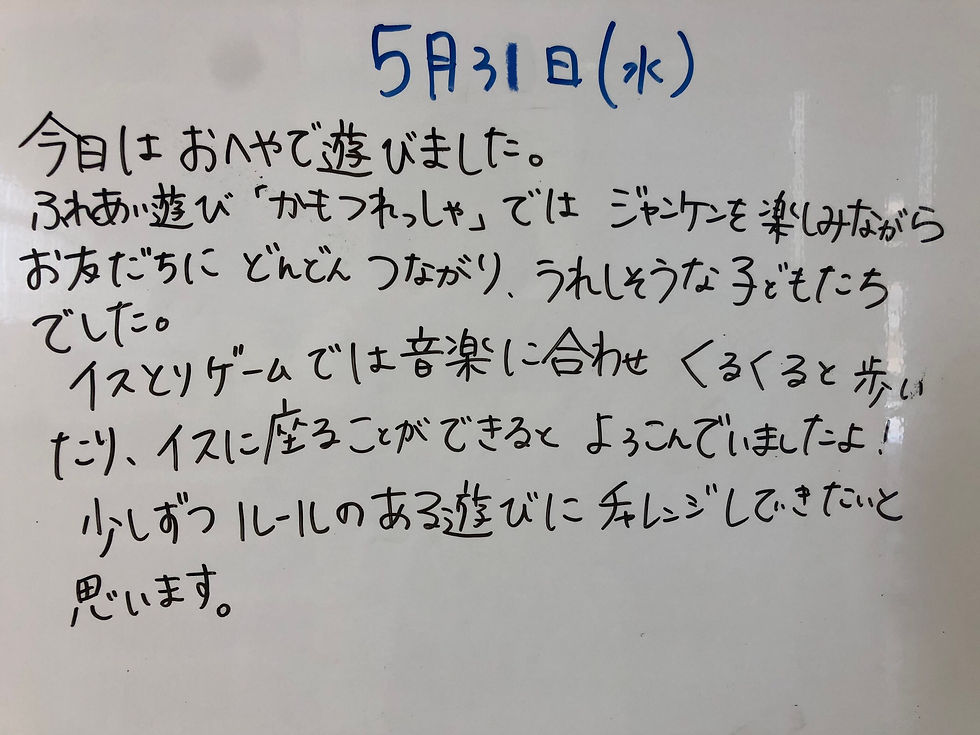 5月31日(水)
今日は おへやで遊びました。
ふれあい遊び「かもつれっしゃ」では ジャンケンを楽しみながら
お友だちに どんどん つながり、うれしそうな子どもたち
でした。
イスとりゲームでは音楽に合わせ くるくると歩い
たり、イスに座ることができると よろこんでいましたよ!
少しずつ ルールのある遊びに チャレンジしできたいと
思います。